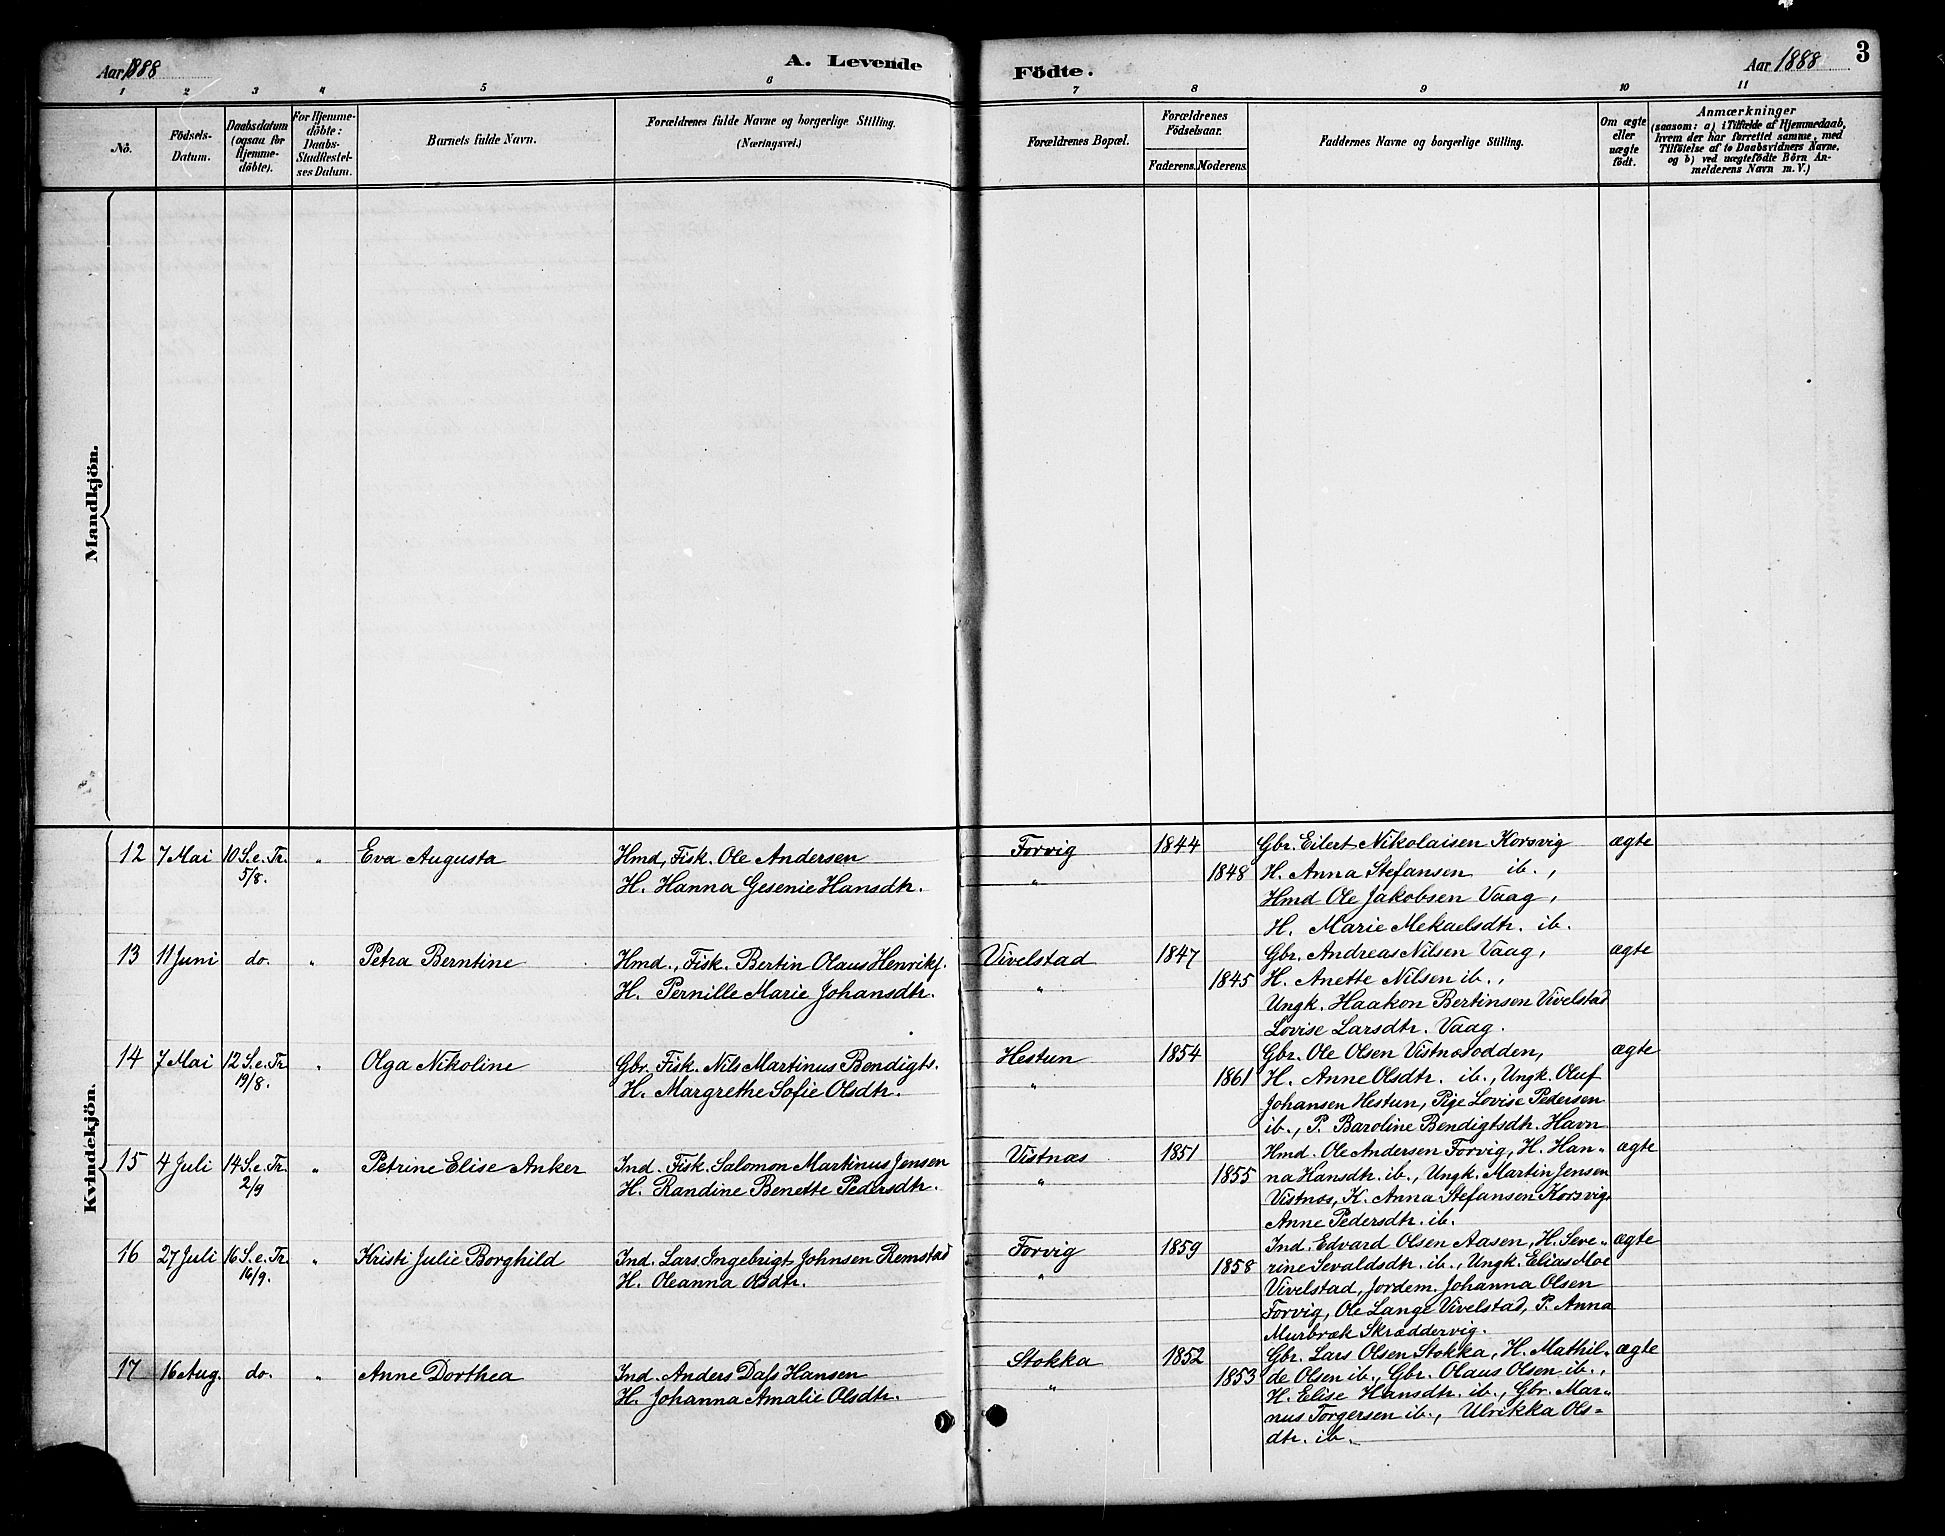 Aar 1888
A. Levende
Födte.
Aar 1888
3
1 2 3 4 5 6 7 8 9 10 11
No.
Födsels-
Datum.
Daabsdatum
(ogsaa for
Hjemme-
döbte).
For Hjemme-
döbte:
Daabs-
Stadfæstel-
ses Datum.
Barnets fulde Navn.
Forældrenes fulde Navne og borgerlige Stilling.
(Næringsvei.)
Forældrenes Bopæl.
Forældrenes
Födselsaar.
Faderens. Moderens.
Faddernes Navne og borgerlige Stilling.
Om ægte
eller
uægte
födt.
Anmærkninger
(saasom: a) i Tilfælde af Hjemmedaab,
hvem der har forrettet samme, med
Tilföielse af to Daabsvidners Navne,
og b) ved uægtefödte Börn An-
melderens Navn m. V.)
Mandkjön.
Kvindekjön.
12 7 Mai 10 S. e. Tr. " Eva Augusta Hmd, Fisk. Ole Andersen Forvig 1844 Gbr. Eilert Nikolaisen Korsvig ægte
5/8. H. Hanna Gesenie Hansdtr. " 1848 H. Anna Stefansen ib.,
Hmd Ole Jakobsen Vaag,
H. Marie Mekaelsdtr. ib.
13 11 Juni do. " Petra Berntine Hmd., Fisk. Bertin Olaus Henriks. Vivelstad 1847 Gbr. Andreas Nilsen Vaag, ægte
H. Pernille Marie Johansdtr. " 1845 H. Anette Nilsen ib.,
Ungk. Haakon Bertinsen Vivelstad
Lovise Larsdtr. Vaag.
14 7 Mai 12 S. e. Tr " Olga Nikoline Gbr. Fisk. Nils Martinus Bendigts. Hestun 1854 Gbr. Ole Olsen Vistnæsodden, ægte
19/8. H. Margrethe Sofie Olsdtr. " 1861 H. Anne Olsdtr. ib., Ungk. Oluf
Johansen Hestun, Pige Lovise Pedersen
ib., P. Baroline Bendigtsdtr. Havn
15 4 Juli 14 S. e. Tr. " Petrine Elise Anker Ind. Fisk. Salomon Martinus Jensen Vistnæs 1851 Hmd. Ole Andersen Forvig, H. Han- ægte
2/9 H. Randine Benette Pedersdtr. " 1855 na Hansdtr. ib., Ungk. Martin Jensen
Vistnæs, K. Anna Stefansen Korsvig
Anne Pedersdtr. ib.
16 27 Juli 16 S. e. Tr. " Kristi Julie Borghild Ind. Lars Ingebrigt Johnsen Remstad Forvig 1859 Ind. Edvard Olsen Aasen, H. Seve- ægte
16/9. H. Oleanna Olsdtr. " 1858 rine Sevaldsdtr. ib., Ungk. Elias Moe
Vivelstad, Jordem. Johanna Olsen
Forvig, Ole Lange Vivelstad, P. Anna
Murbræk Skræddervig.
17 16 Aug. do. " Anne Dorthea Ind. Anders Dass Hansen Stokka 1852 Gbr. Lars Olsen Stokka, H. Mathil- ægte
H. Johanna Amalie Olsdtr. " 1853 de Olsen ib., Gbr. Olaus Olsen ib.,
H. Elise Hansdtr. ib., Gbr. Mar-
nus Torgersen ib., Ulrikka Ols-
dtr. ib.